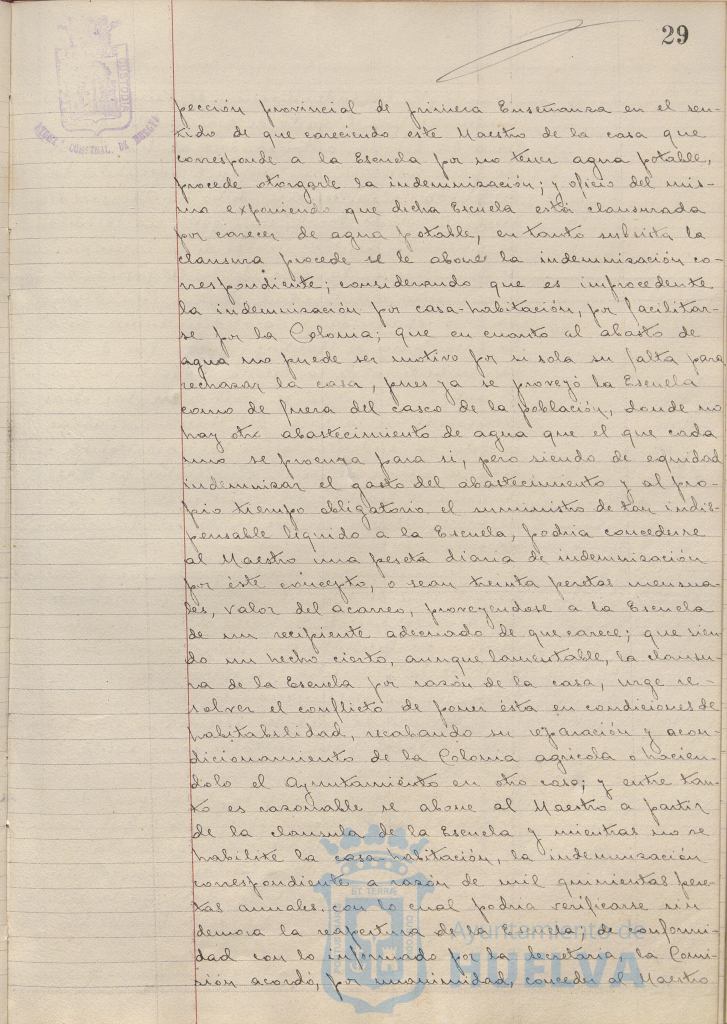 29
AYUNTº CONSTNAL. DE HUELVA
pección provincial de primera Enseñanza en el sen-
tido de que careciendo este Maestro de la casa que
corresponde a la Escuela por no tener agua potable,
procede otorgarle la indemnización; y oficio del mis-
mo exponiendo que dicha Escuela está clausurada
por carecer de agua potable, en tanto subsista la
clausura procede se le abone la indemnización co-
rrespondiente; considerando que es improcedente
la indemnización por casa-habitación, por facilitar-
se por la Colonia; que en cuanto al abasto de
agua no puede ser motivo por si sola su falta para
rechazar la casa, pues ya se proveyó la Escuela
como de fuera del casco de la población, donde no
hay otro abastecimiento de agua que el que cada
uno se procura para si, pero siendo de equidad
indemnizar el gasto del abastecimiento y al pro-
pio tiempo obligatorio el suministro de tan indis-
pensable líquido a la Escuela, podria concederse
al Maestro una peseta diaria de indemnización
por éste concepto, o sean treinta pesetas mensua-
les, valor del acarreo, proveyendose a la Escuela
de un recipiente adecuado de que carece; que sien-
do un hecho cierto, aunque lamentable, la clausu-
ra de la Escuela por razón de la casa, urge re-
solver el conflicto de poner ésta en condiciones de
habitabilidad, recabando su reparación y acon-
dicionamiento de la Colonia agricola o hacien-
dolo el Ayuntamiento en otro caso; y entre tan-
to es razonable se abone al Maestro a partir
de la clausula de la Escuela y mientras no se
habilite la casa-habitación, la indemnización
correspondiente a razón de mil quinientas pese-
tas anuales, con lo cual podria verificarse sin
demora la reapertura de la Escuela; de conformi-
dad con lo informado por la Secretaria, la Comi-
sión acordó, por unanimidad, conceder al Maestro
Ayuntamiento de
HUELVA